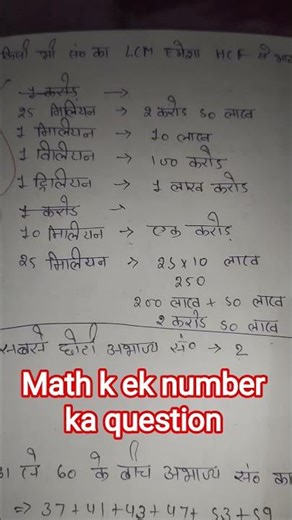 किसी भी सं० का LCM हमेशा HCF से
1 करोड़ →
25 मिलियन → 2 करोड़ 50 लाख
1 मिलियन → 10 लाख
1 बिलियन → 100 करोड़
1 ट्रिलियन → 1 लाख करोड़
1 करोड़ →
10 मिलियन → एक करोड़
25 मिलियन => 25 x 10 लाख
250
200 लाख + 50 लाख
2 करोड़ 50 लाख
सबसे छोटी अभाज्य सं० → 2
Math k ek number
ka question
से 60 के बीच अभाज्य सं० का
=> 37 + 41 + 43 + 47 + 53 + 59